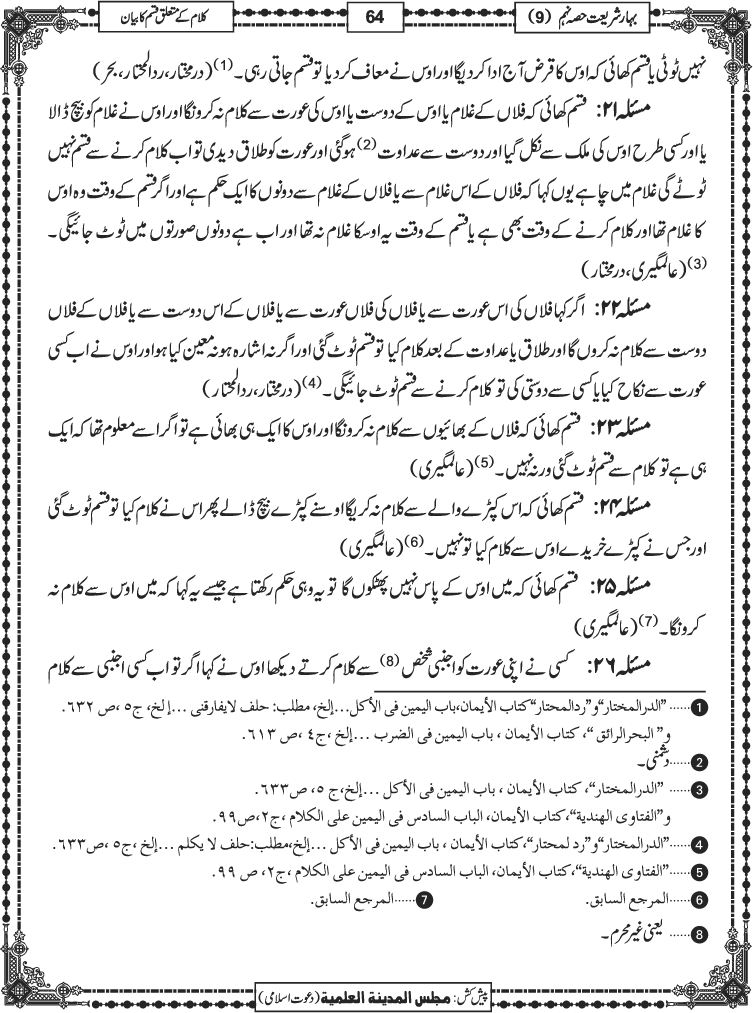 بہارِ شریعت حصہ نہم (9)
64
کلام کے متعلق قسم کا بیان
نہیں ٹوٹی یا قسم کھائی کہ اوس کا قرض آج ادا کردیگا اور اوس نے معاف کردیا تو قسم جاتی رہی۔(1) (درمختار، ردالمحتار، بحر)
مسئلہ ۲۱: قسم کھائی کہ فلاں کے غلام یا اوس کے دوست یا اوس کی عورت سے کلام نہ کرونگا اور اوس نے غلام کو بیچ ڈالا
یا اور کسی طرح اوس کی ملک سے نکل گیا اور دوست سے عداوت(2) ہوگئی اور عورت کو طلاق دیدی تو اب کلام کرنے سے قسم نہیں
ٹوٹے گی غلام میں چاہے یوں کہا کہ فلاں کے اس غلام سے یا فلاں کے غلام سے دونوں کا ایک حکم ہے اور اگر قسم کے وقت وہ اوس
کا غلام تھا اور کلام کرنے کے وقت بھی ہے یا قسم کے وقت یہ اوسکا غلام نہ تھا اور اب ہے دونوں صورتوں میں ٹوٹ جائیگی۔
(3) (عالمگیری، درمختار)
مسئلہ ۲۲: اگر کہا فلاں کی اس عورت سے یا فلاں کی فلاں عورت سے یا فلاں کے اس دوست سے یا فلاں کے فلاں
دوست سے کلام نہ کروں گا اور طلاق یا عداوت کے بعد کلام کیا تو قسم ٹوٹ گئی اور اگر نہ اشارہ ہو نہ معین کیا ہو اور اوس نے اب کسی
عورت سے نکاح کیا یا کسی سے دوستی کی تو کلام کرنے سے قسم ٹوٹ جائیگی۔(4) (درمختار، ردالمحتار)
مسئلہ ۲۳: قسم کھائی کہ فلاں کے بھائیوں سے کلام نہ کرونگا اور اوس کا ایک ہی بھائی ہے تو اگر اسے معلوم تھا کہ ایک
ہی ہے تو کلام سے قسم ٹوٹ گئی ورنہ نہیں۔(5) (عالمگیری)
مسئلہ ۲۴: قسم کھائی کہ اس کپڑے والے سے کلام نہ کریگا اوسنے کپڑے بیچ ڈالے پھر اس نے کلام کیا تو قسم ٹوٹ گئی
اور جس نے کپڑے خریدے اوس سے کلام کیا تو نہیں۔(6) (عالمگیری)
مسئلہ ۲۵: قسم کھائی کہ میں اوس کے پاس نہیں پھٹکوں گا تو یہ وہی حکم رکھتا ہے جیسے یہ کہا کہ میں اوس سے کلام نہ
کرونگا۔(7) (عالمگیری)
مسئلہ ۲۶: کسی نے اپنی عورت کو اجنبی شخص(8) سے کلام کرتے دیکھا اوس نے کہا اگر تو اب کسی اجنبی سے کلام
1 ......”الدرالمختار“و”ردالمحتار“کتاب الأیمان،باب الیمین فی الأکل...إلخ، مطلب: حلف لایفارقنی ...إلخ، ج۵ ،ص ۶۳۲.
و” البحرالرائق “، کتاب الأیمان ، باب الیمین فی الضرب ...إلخ ،ج٤ ،ص ۶۱۳.
2 ......دشمنی۔
3 ...... ”الدرالمختار“، کتاب الأیمان ، باب الیمین فی الأکل ...إلخ،ج ۵، ص۶۳۳.
و”الفتاوی الھندیة“،کتاب الأیمان، الباب السادس فی الیمین علی الکلام ،ج۲،ص۹۹.
4 ......”الدرالمختار“و”رد لمحتار“،کتاب الأیمان ، باب الیمین فی الأکل ...إلخ،مطلب:حلف لا یکلم ...إلخ ،ج۵ ،ص۶۳۳.
5 ......”الفتاوی الھندیة“،کتاب الأیمان، الباب السادس فی الیمین علی الکلام ،ج۲، ص ۹۹.
6 ......المرجع السابق. 7 ......المرجع السابق.
8 ...... یعنی غیر محرم۔
پیش کش: مجلس المدینة العلمیة (دعوت اسلامی)